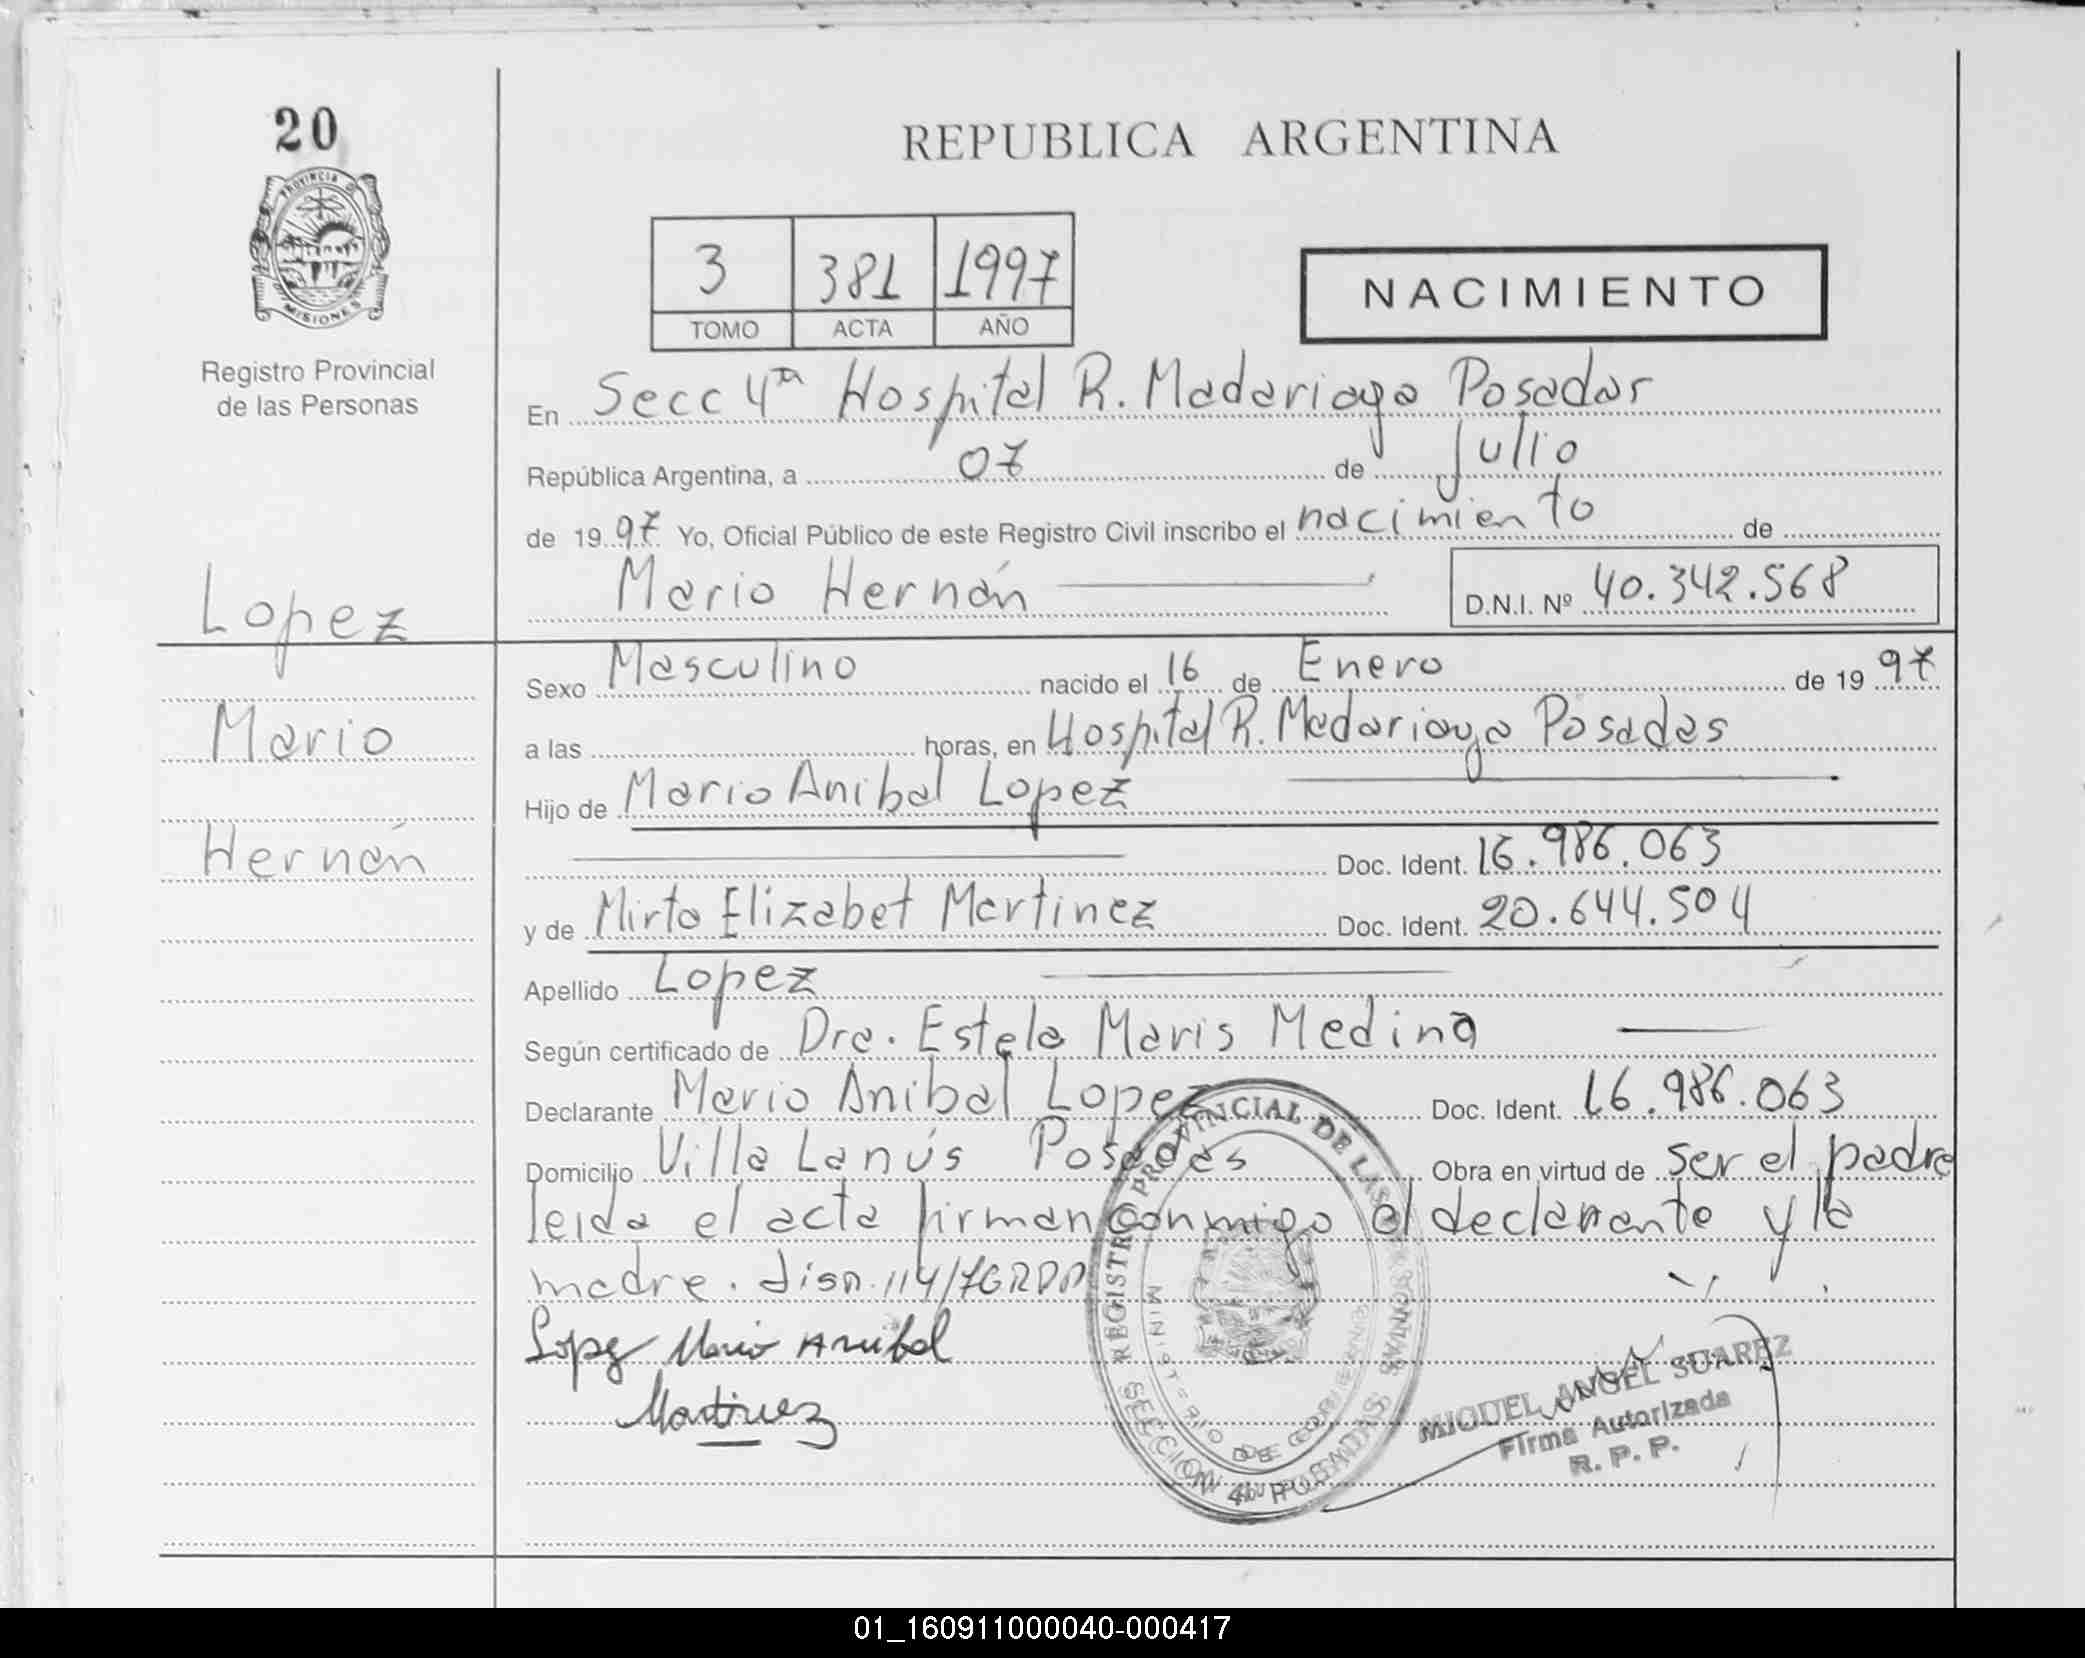 20
PROVINCIA D
MISIONES
Registro Provincial
de las Personas
Lopez
Mario
Hernán
REPUBLICA ARGENTINA
3 381 1997
TOMO ACTA AÑO
NACIMIENTO
En Secc 4ta Hospital R. Madariaga Posadas
República Argentina, a 07 de Julio
de 1997 Yo, Oficial Público de este Registro Civil inscribo el nacimiento de
Mario Hernán D.N.I. Nº 40.342.568
Sexo Masculino nacido el 16 de Enero de 1997
a las horas, en Hospital R. Madariaga Posadas
Hijo de Mario Anibal Lopez
Doc. Ident. 16.986.063
y de Mirta Elizabet Martinez Doc. Ident. 20.644.504
Apellido Lopez
Según certificado de Dra. Estela Maris Medina
Declarante Mario Anibal Lopez Doc. Ident. 16.986.063
Domicilio Villa Lanús Posadas Obra en virtud de ser el padre
leida el acta firman conmigo el declarante y la
madre. 114/
Lopez Mario Anibal
Martinez
REGISTRO PROVINCIAL DE LAS
MINISTERIO DE GOBIERNO
SECCION POSADAS
MIGUEL ANGEL SUAREZ
Firma Autorizada
R. P. P.
01_160911000040-000417